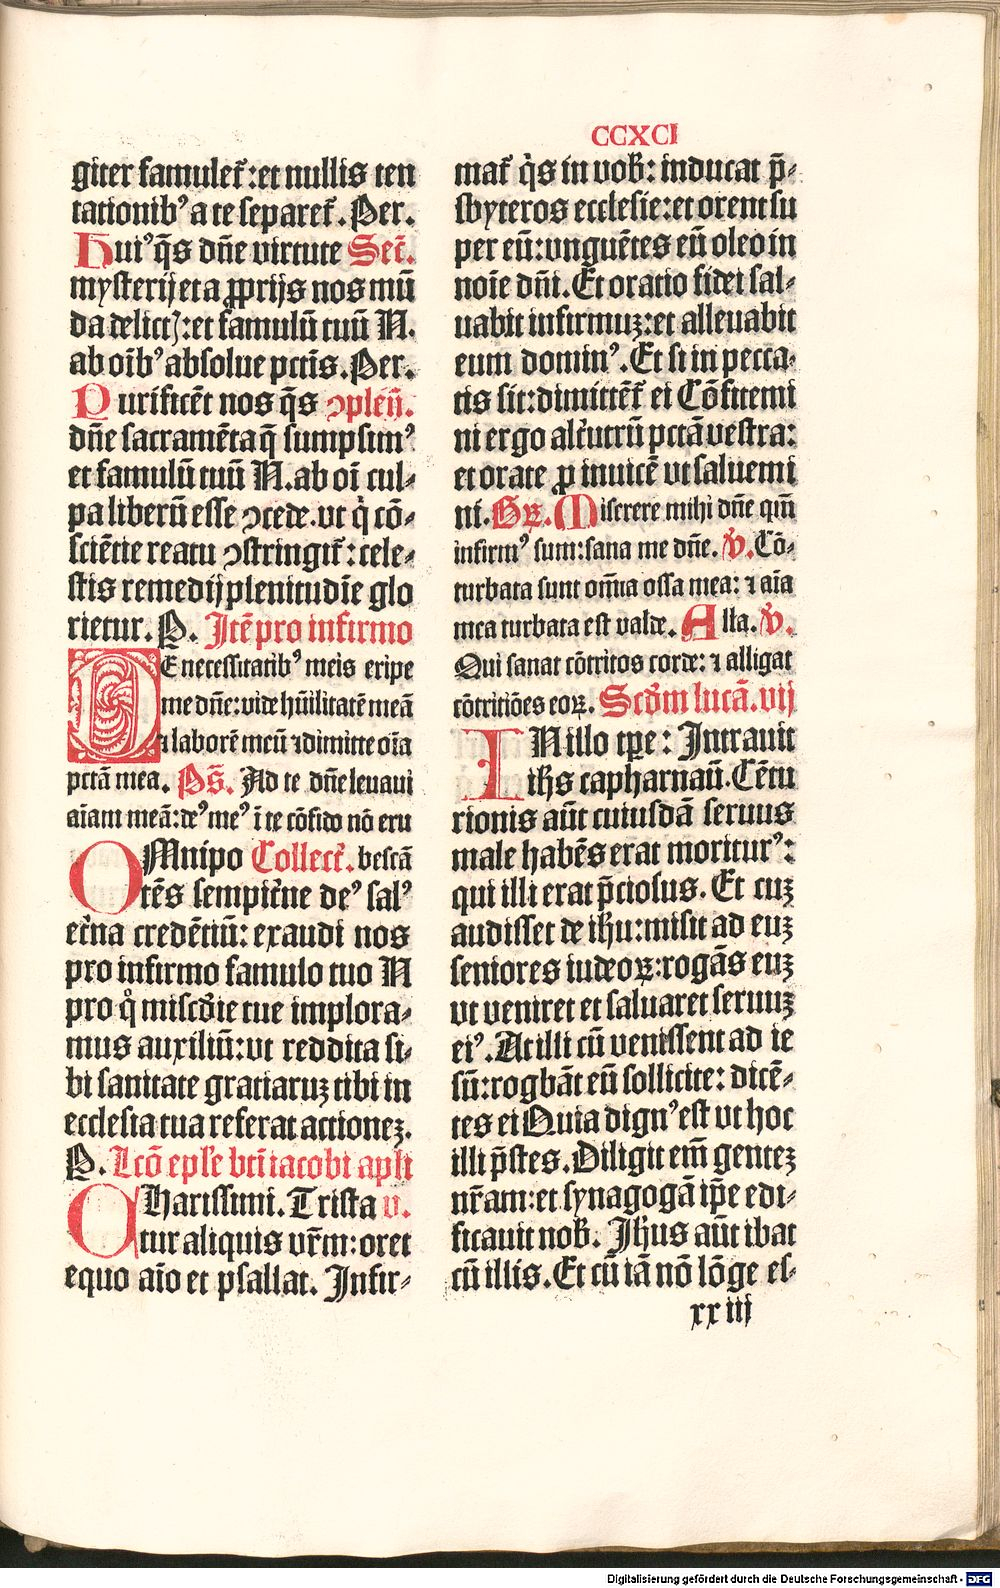 CCXCI
giter famulet᷑: et nullis ten
tationib⁹ a te separet᷑. Per.
Hui⁹ q̄s dn̄e virtute Sec̄.
mysterij et a ꝓprijs nos mū
da delictꝭ: et famulū tuū N.
ab oīb⁹ absolue pctīs. Per.
Purificēt nos q̄s ↄplen̄.
dn̄e sacramēta q̄ sumpsim⁹
et famulū tuū N. ab oī cul⸗
pa liberū esse ↄcede. vt q̇ cō⸗
sciētie reatu ↄstringit᷑: cele⸗
stis remedij plenitudīe glo
rietur. P. Itē pro infirmo
DE necessitatib⁹ meis eripe
me dn̄e: vide hūilitatē meā
⁊ laborē meū ⁊ dimitte oīa
pctā mea. Ps̄. Ad te dn̄e leuaui
aīam meā: de⁹ me⁹ ī te cōfido nō eru
OMnipo Collect᷑. bescā
tēs sempit̄ne de⁹ sal⁹
et̄na credētiū: exaudi nos
pro infirmo famulo tuo N
pro q̊ misc̄die tue implora⸗
mus auxiliū: vt reddita si⸗
bi sanitate gratiaruꝫ tibi in
ecclesia tua referat actioneꝫ.
P. Lcō ep̄le bti iacobi apl̄i
CHarissimi. Trista v.
tur aliquis vr̄m: oret
equo aīo et psallat. Infir⸗
mat᷑ q̇s in vob̄: inducat p̄⸗
sbyteros ecclesie: et orent su
per eū: vnguētes eū oleo in
noīe dn̄i. Et oratio fidei sal⸗
uabit infirmuꝫ: et alleuabit
eum domin⁹. Et si in pecca⸗
tis sit: dimittēt᷑ ei Cōfitemi
ni ergo alt̄utrū pctā vestra:
et orate ꝓ inuicē vt saluemi
ni. Grꝝ. Miserere mihi dn̄e qm̄
infirm⁹ sum: sana me dn̄e. V̄. Cō⸗
turbata sunt om̄ia ossa mea: ⁊ aīa
mea turbata est valde. Alla. V̄.
Qui sanat cōtritos corde: ⁊ alligat
cōtritiōes eoꝝ. Scd̄m lucā. vij
IN illo tp̄e: Intrauit
ih̄s capharnaū. Cētu
rionis aūt cuiusdā seruus
male habēs erat moritur⁹:
qui illi erat p̄ciosus. Et cuꝫ
audisset de ih̄u: misit ad euꝫ
seniores iudeoꝝ: rogās euꝫ
vt veniret et saluaret seruuꝫ
ei⁹. At illi cū venissent ad ie
sū: rogbāt eū sollicite: dicē⸗
tes ei Quia dign⁹ est vt hoc
illi p̄stes. Diligit em̄ genteꝫ
nr̄am: et synagogā ip̄e edi⸗
ficauit nob̄. Jh̄us aūt ibat
cū illis. Et cū iā nō lōge es⸗
xx iij
Digitalisierung gefördert durch die Deutsche Forschungsgemeinschaft - DFG